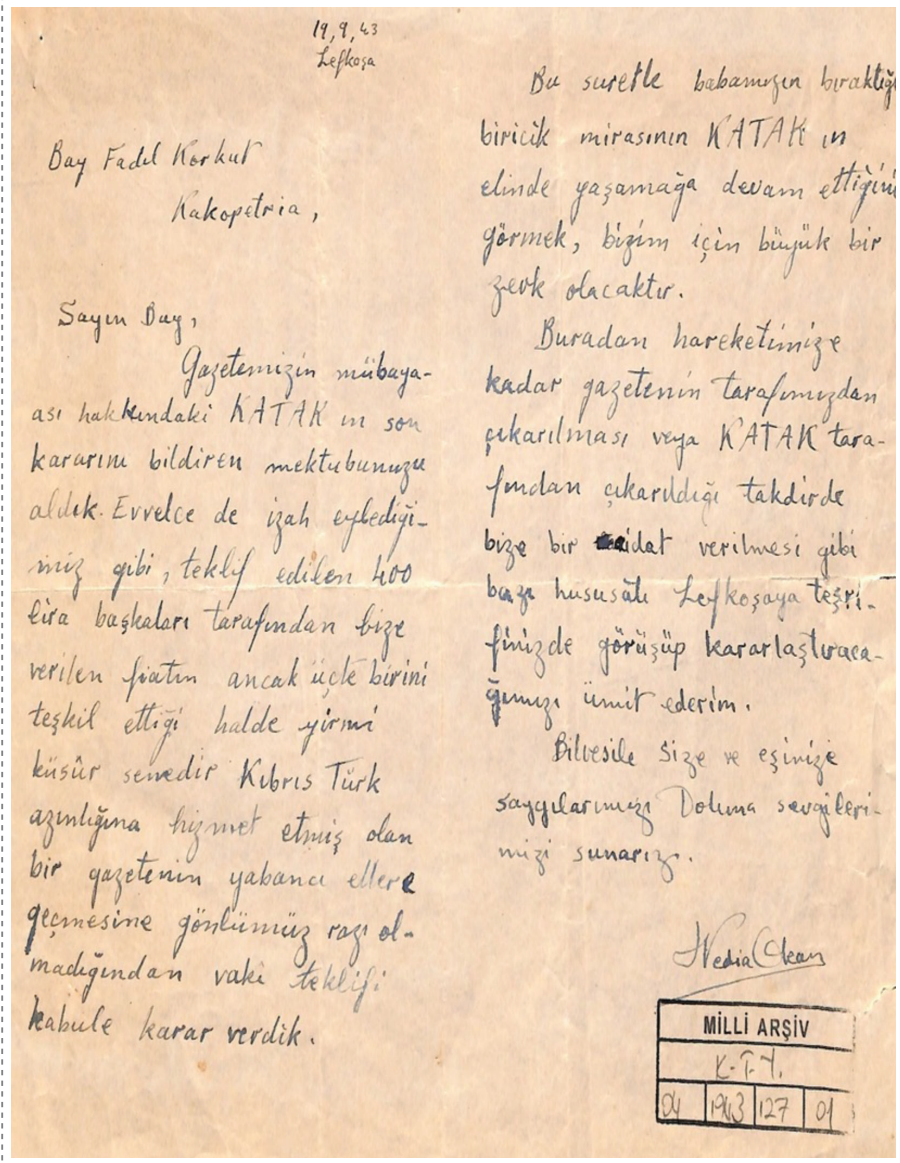 19,9,43
Lefkoşa
Bay Fadıl Korkut
Kakopetria,
Sayın Bay,
Gazetemizin mübaya-
ası hakkındaki KATAK ın son
kararını bildiren mektubunuzu
aldık. Evvelce de izah eylediği-
miz gibi, teklif edilen 400
lira başkaları tarafından bize
verilen fiatın ancak üçte birini
teşkil ettiği halde yirmi
küsûr senedir Kıbrıs Türk
azınlığına hizmet etmiş olan
bir gazetenin yabancı ellere
geçmesine gönlümüz razı ol-
madığından vaki teklifi
kabule karar verdik.
Bu suretle babamızın bıraktığı
biricik mirasının KATAK ın
elinde yaşamağa devam ettiğini
görmek, bizim için büyük bir
zevk olacaktır.
Buradan hareketimize
kadar gazetenin tarafımızdan
çıkarılması veya KATAK tara-
fından çıkarıldığı takdirde
bize bir aidat verilmesi gibi
bazı hususâtı Lefkoşaya teşri-
finizde görüşüp kararlaştıraca-
ğımızı ümit ederim.
Bilvesile Size ve eşinize
saygılarımızı Doluna sevgileri-
mizi sunarız.
Vedia
MİLLİ ARŞİV
K.T.Y.
04 1943 127 01